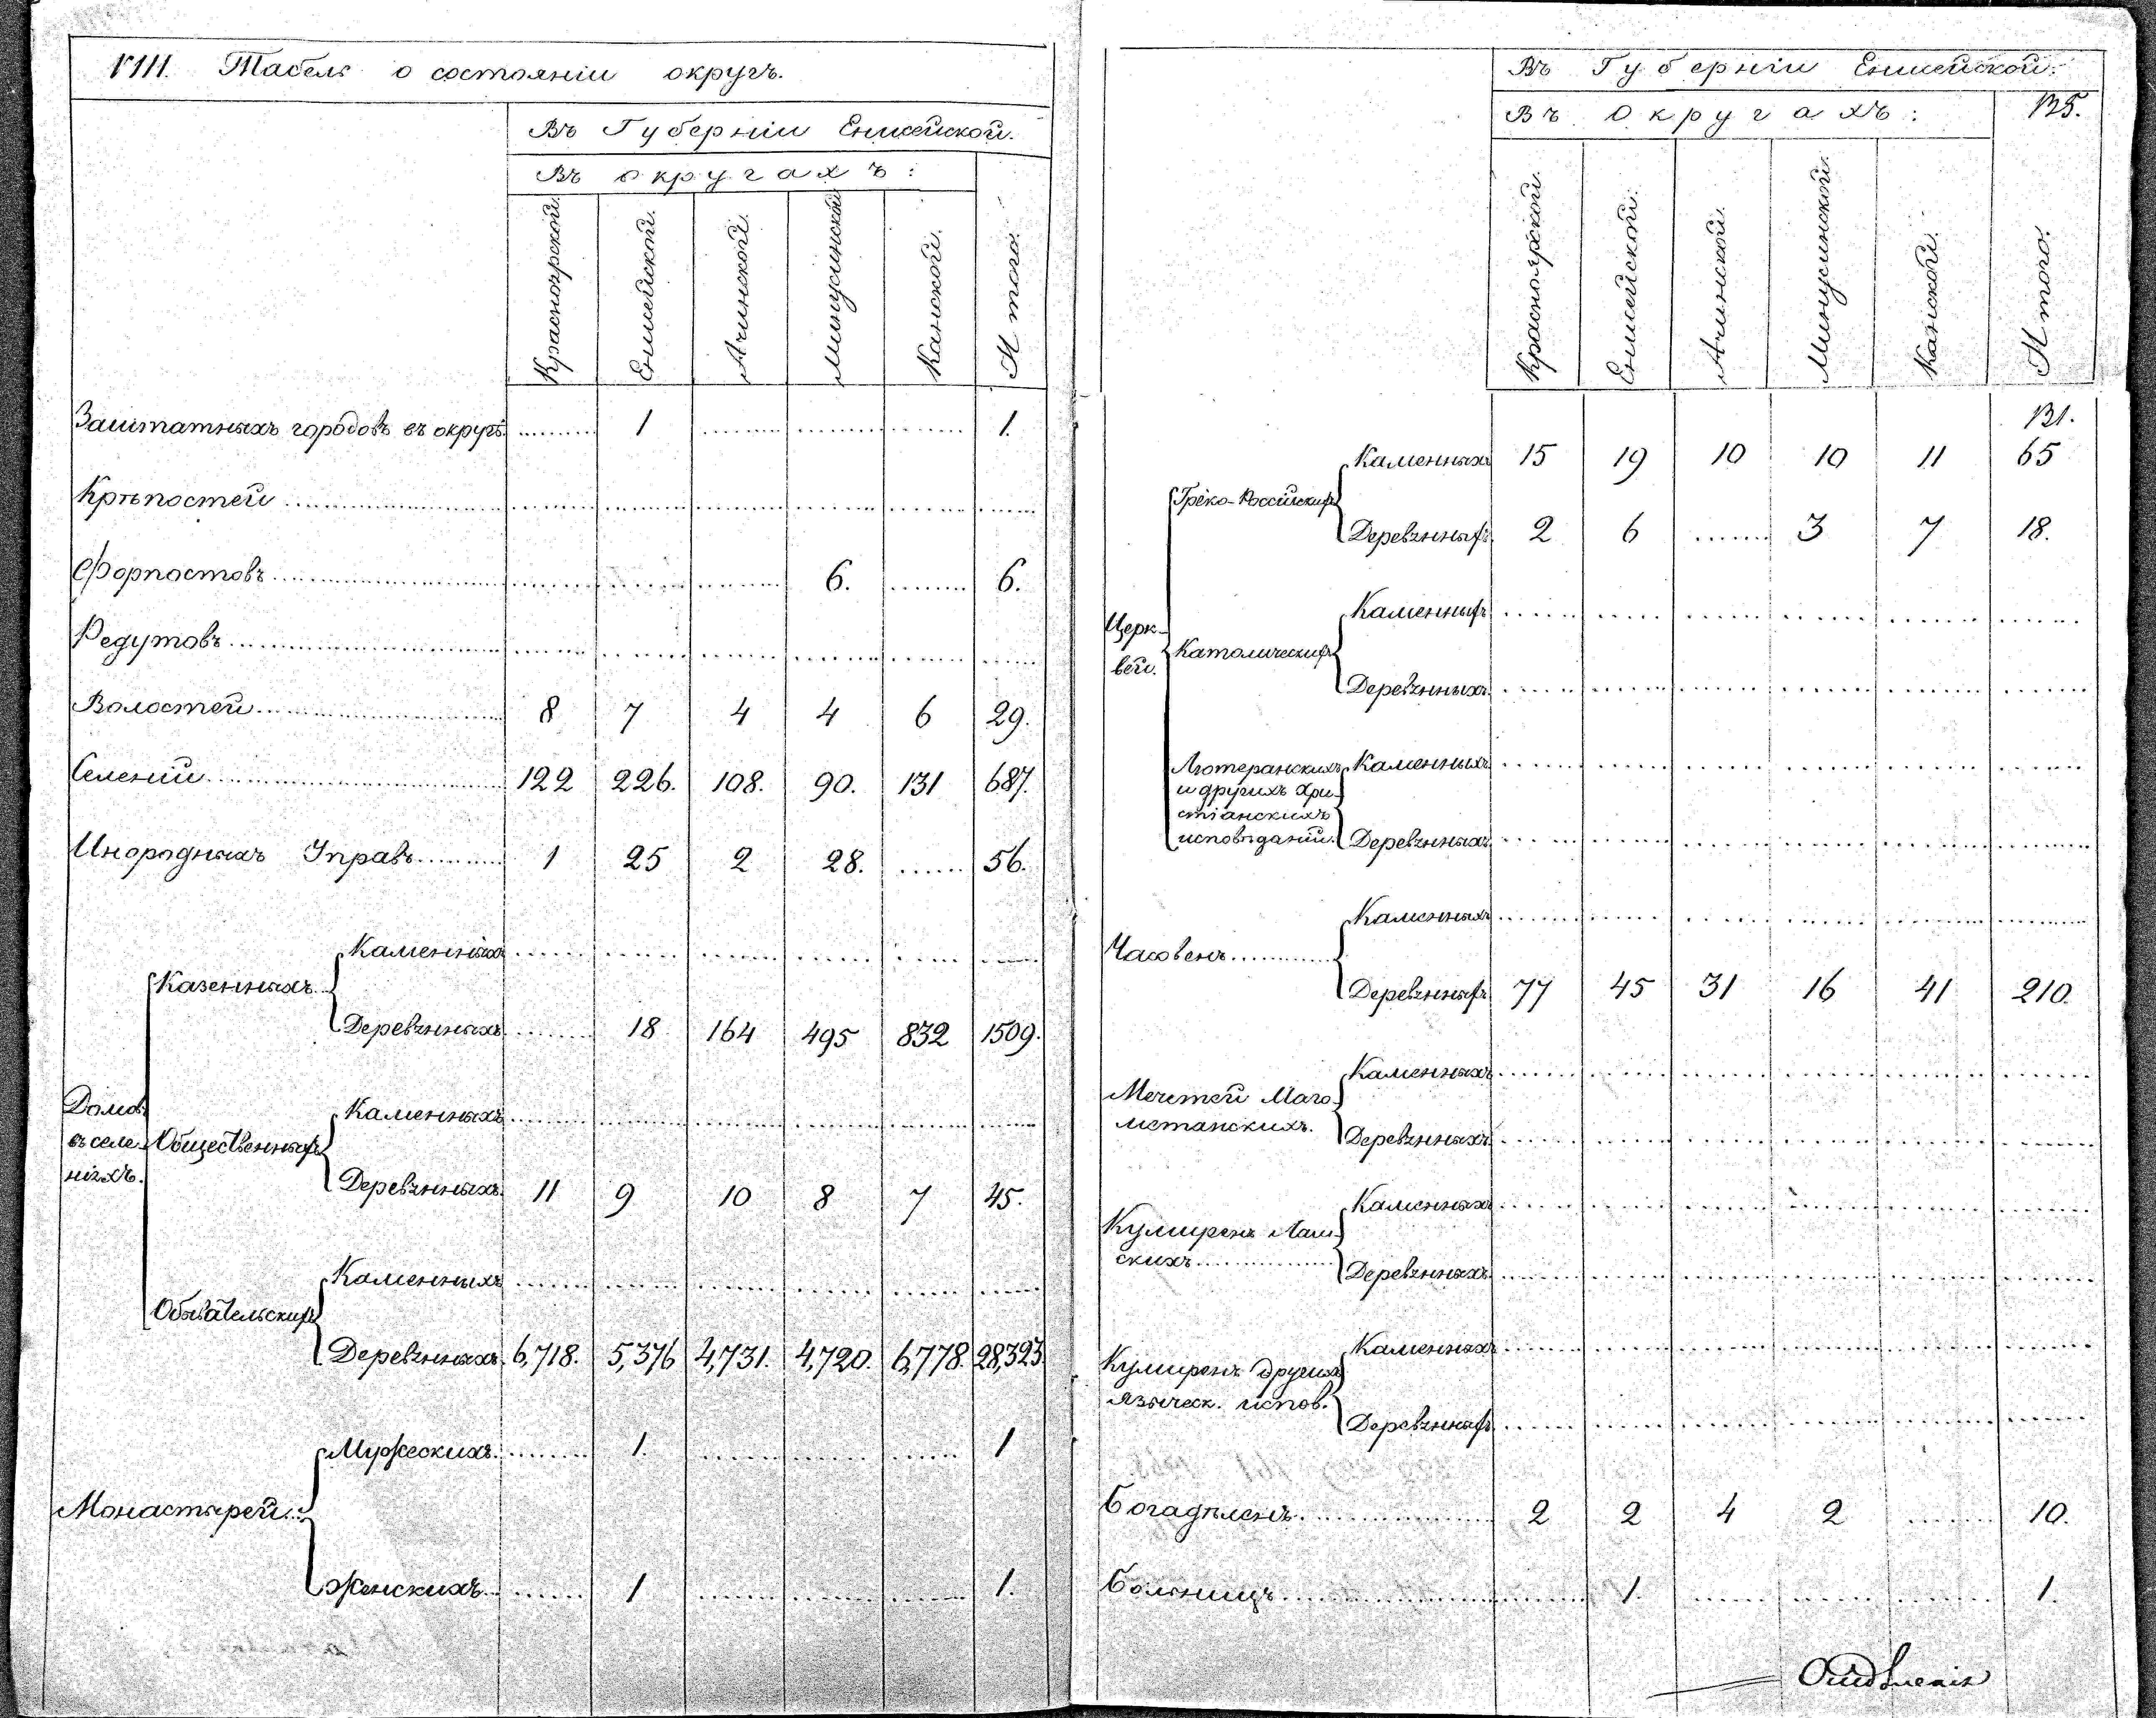 VIII. Табель о состояніи округъ.
Въ Губерніи Енисейской.
Въ округахъ:
Красноярской. Енисейской. Ачинской. Минусинской Канской. Итого.
Заштатныхъ городовъ въ округѣ ......... 1 ......... ......... ......... 1.
Крѣпостей
Форпостовъ ......... 6. ......... 6.
Редутовъ
Волостей 8 7 4 4 6 29.
Селеній 122 226. 108. 90. 131 687.
Инородныхъ Управъ 1 25 2 28. ...... 56.
Домовъ въ селеніяхъ.
Казенныхъ
Каменныхъ
Деревянныхъ ......... 18 164 495 832 1509.
Общественныхъ
Каменныхъ
Деревянныхъ 11 9 10 8 7 45.
Обывательскихъ
Каменныхъ
Деревянныхъ 6,718. 5,376 4,731. 4,720. 6,778. 28,323
Монастырей
Мужескихъ ......... 1. ......... 1
Женскихъ ......... 1 ......... 1.
Въ Губерніи Енисейской.
Въ округахъ: 135.
Красноярской. Енисейской. Ачинской. Минусинской. Канской. Итого.
131.
Церквей.
Греко-Россійскихъ
Каменныхъ 15 19 10 10 11 65
Деревянныхъ 2 6 ....... 3 7 18.
Католическихъ
Каменныхъ
Деревянныхъ
Лютеранскихъ
и другихъ Хри-
стіанскихъ
исповѣданій.
Каменныхъ
Деревянныхъ
Часовень
Каменныхъ
Деревянныхъ 77 45 31 16 41 210.
Мечетей Маго-
метанскихъ.
Каменныхъ
Деревянныхъ
Кумирень Лам-
скихъ
Каменныхъ
Деревянныхъ
Кумирень другихъ
языческ. испов.
Каменныхъ
Деревянныхъ
Богадѣлень 2 2 4 2 ........ 10.
Больницъ ......... 1. ......... 1.